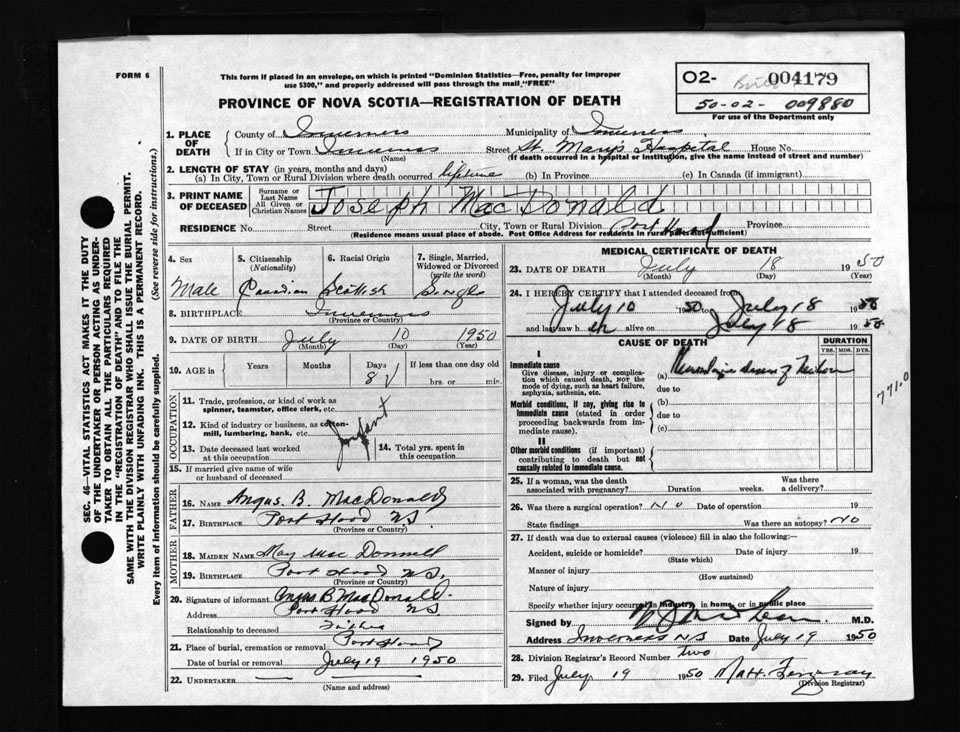 FORM 6
This form if placed in an envelope, on which is printed "Dominion Statistics—Free, penalty for improper
use $300," and properly addressed will pass through the mail "FREE"
O2- 004179
50-02- 009880
For use of the Department only
PROVINCE OF NOVA SCOTIA—REGISTRATION OF DEATH
1. PLACE OF DEATH
County of Inverness Municipality of Inverness
If in City or Town Inverness Street St. Mary's Hospital House No.
(Name) (If death occurred in a hospital or institution, give the name instead of street and number)
2. LENGTH OF STAY (in years, months and days)
(a) In City, Town or Rural Division where death occurred lifetime (b) In Province (c) In Canada (if immigrant)
3. PRINT NAME OF DECEASED
Surname or Last Name
All Given or Christian Names
Joseph MacDonald
RESIDENCE No. Street City, Town or Rural Division Port Hood Province
(Residence means usual place of abode. Post Office Address for residents in rural parts not sufficient)
4. Sex
Male
5. Citizenship (Nationality)
Canadian
6. Racial Origin
Scottish
7. Single, Married, Widowed or Divorced (write the word)
Single
8. BIRTHPLACE Inverness
(Province or Country)
9. DATE OF BIRTH July 10 1950
(Month) (Day) (Year)
10. AGE in Years Months Days If less than one day old
8 hrs. or min.
OCCUPATION
11. Trade, profession, or kind of work as
spinner, teamster, office clerk, etc.
12. Kind of industry or business, as cotton-
mill, lumbering, bank, etc.
Infant
13. Date deceased last worked
at this occupation
14. Total yrs. spent in
this occupation
15. If married give name of wife
or husband of deceased
FATHER
16. NAME Angus. B. MacDonald
17. BIRTHPLACE Port Hood NS
(Province or Country)
MOTHER
18. MAIDEN NAME May MacDonnell
19. BIRTHPLACE Port Hood N.S.
(Province or Country)
20. Signature of informant Angus B MacDonald.
Address Port Hood NS
Relationship to deceased Father
21. Place of burial, cremation or removal Port Hood
Date of burial or removal July 19 1950
22. UNDERTAKER
(Name and address)
MEDICAL CERTIFICATE OF DEATH
23. DATE OF DEATH July 18 1950
(Month) (Day) (Year)
24. I HEREBY CERTIFY that I attended deceased from
July 10 1950 to July 18 1950
and last saw h alive on July 18 1950
CAUSE OF DEATH
DURATION
YRS. MOS. DYS.
I
Immediate cause
Give disease, injury or complica-
tion which caused death, not the
mode of dying, such as heart failure,
asphyxia, asthenia, etc.
(a) disease of Newborn
due to
771.0
Morbid conditions, if any, giving rise to
immediate cause (stated in order
proceeding backwards from im-
mediate cause).
(b)
due to
(c)
II
Other morbid conditions (if important)
contributing to death but not
causally related to immediate cause.
25. If a woman, was the death
associated with pregnancy? Duration weeks. Was there
a delivery?
26. Was there a surgical operation? NO Date of operation 19
State findings Was there an autopsy? NO
27. If death was due to external causes (violence) fill in also the following:—
Accident, suicide or homicide? Date of injury 19
(State which)
Manner of injury
(How sustained)
Nature of injury
Specify whether injury occurred in industry, in home, or in public place
Signed by M.D.
Address Inverness NS Date July 19 1950
28. Division Registrar's Record Number two
29. Filed July 19 1950 Matt. Ferguson
(Division Registrar)
SEC. 46—VITAL STATISTICS ACT MAKES IT THE DUTY
OF THE UNDERTAKER OR PERSON ACTING AS UNDER-
TAKER TO OBTAIN ALL THE PARTICULARS REQUIRED
IN THE "REGISTRATION OF DEATH" AND TO FILE THE
SAME WITH THE DIVISION REGISTRAR WHO SHALL ISSUE THE BURIAL PERMIT.
WRITE PLAINLY WITH UNFADING INK. THIS IS A PERMANENT RECORD.
Every item of information should be carefully supplied. (See reverse side for instructions.)